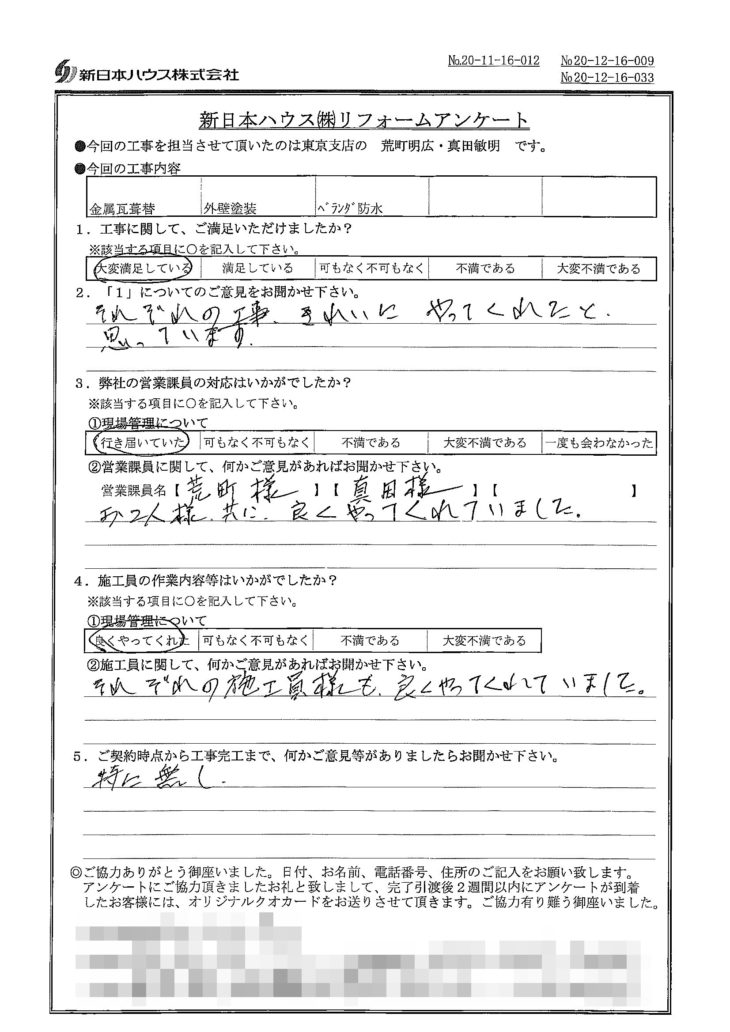 新日本ハウス株式会社
№20-11-16-012 №20-12-16-009
№20-12-16-033
新日本ハウス㈱リフォームアンケート
●今回の工事を担当させて頂いたのは東京支店の 荒町明広・真田敏明 です。
●今回の工事内容
金属瓦葺替 外壁塗装 ﾍﾞﾗﾝﾀﾞ防水
1．工事に関して、ご満足いただけましたか？
※該当する項目に○を記入して下さい。
大変満足している 満足している 可もなく不可もなく 不満である 大変不満である
2．「1」についてのご意見をお聞かせ下さい。
それぞれの工事、きれいに やってくれたと.
思っています.
3．弊社の営業課員の対応はいかがでしたか？
※該当する項目に○を記入して下さい。
①現場管理について
行き届いていた 可もなく不可もなく 不満である 大変不満である 一度も会わなかった
②営業課員に関して、何かご意見があればお聞かせ下さい。
営業課員名【荒町様 】【真田様 】【 】
お2人様、共に、良くやってくれていました。
4．施工員の作業内容等はいかがでしたか？
※該当する項目に○を記入して下さい。
①現場管理について
良くやってくれた 可もなく不可もなく 不満である 大変不満である
②施工員に関して、何かご意見があればお聞かせ下さい。
それぞれの施工員様も、良くやってくれていました。
5．ご契約時点から工事完工まで、何かご意見等がありましたらお聞かせ下さい。
特に無し.
◎ご協力ありがとう御座いました。日付、お名前、電話番号、住所のご記入をお願い致します。
アンケートにご協力頂きましたお礼と致しまして、完了引渡後２週間以内にアンケートが到着
したお客様には、オリジナルクオカードをお送りさせて頂きます。ご協力有り難う御座いました。